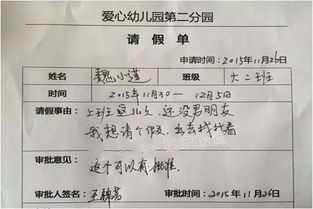 爱心幼儿园第二分园
请假单
申请时间：2015年11月26日
姓名 魏小莲 班级 大二班
时间 2015年11月30 — 12月5日
请假事由：上班这儿久，还没男朋友
我想请个假，出去找找看
审批意见：这个可以有，批准
审批人签名： 审批时间：2015年11月26日